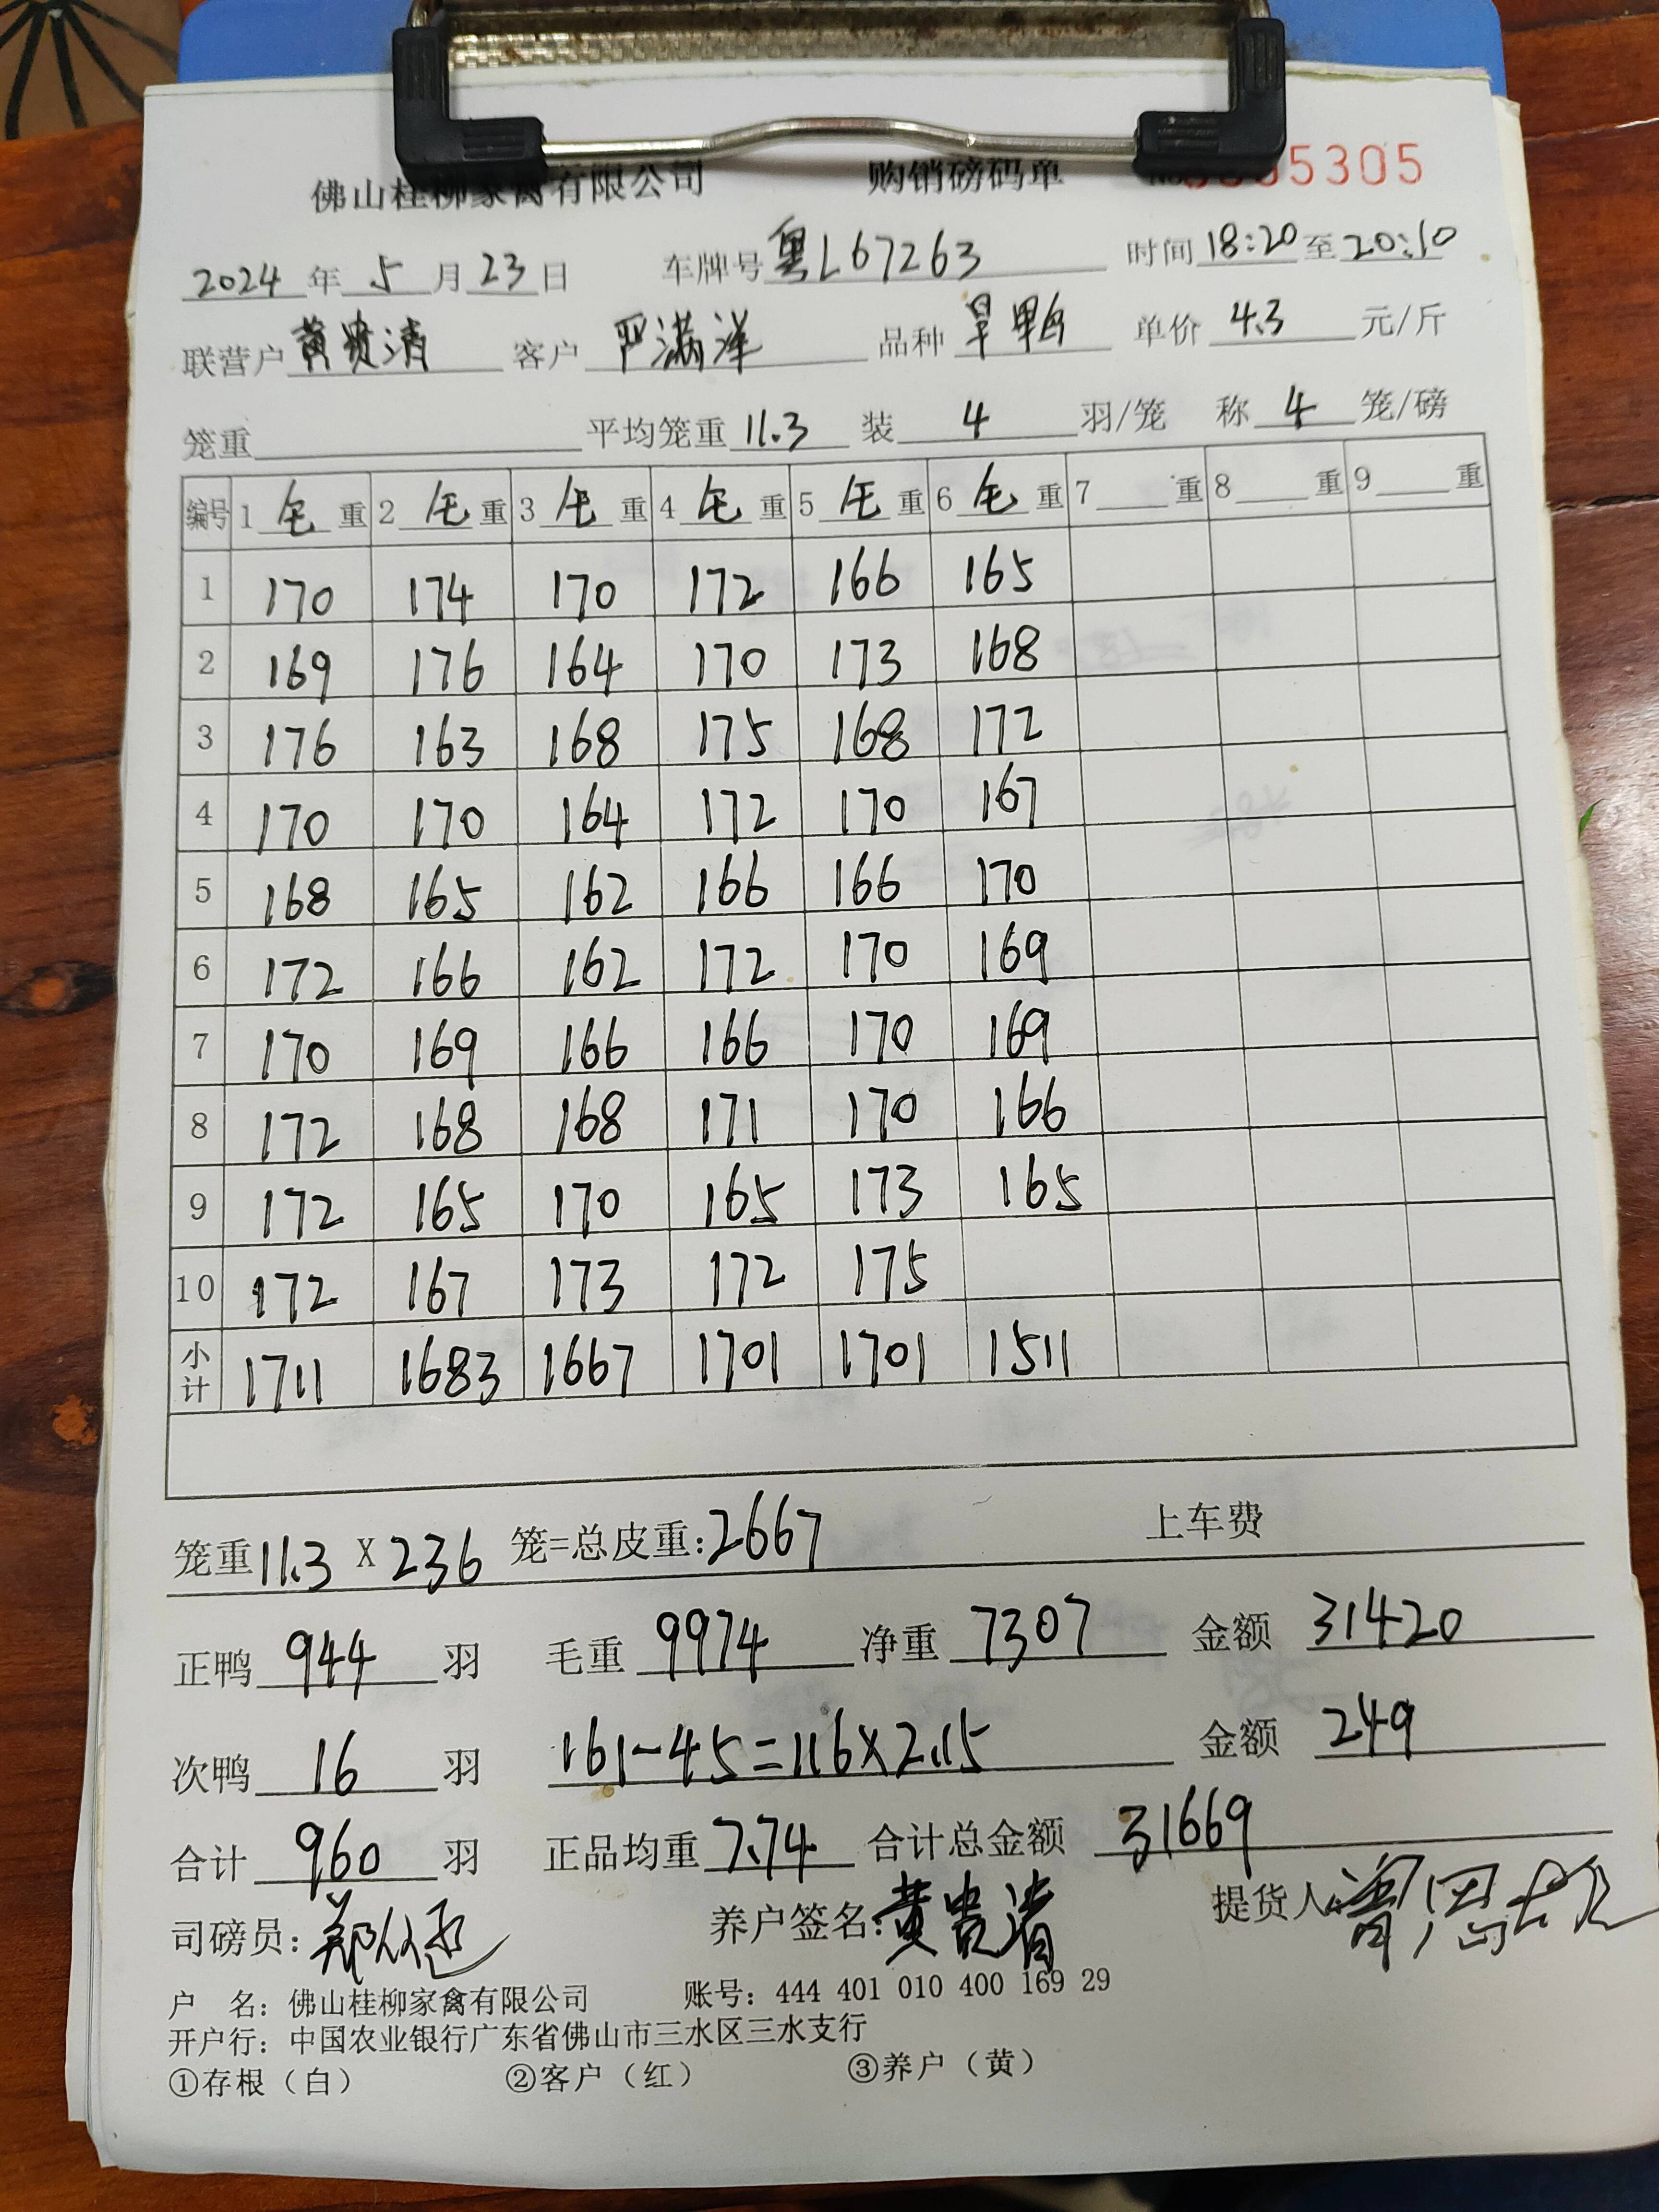 佛山桂柳家禽有限公司 购销磅码单 5305
2024年5月23日 车牌号粤L67263 时间18:20至20:10
联营户黄贵清 客户严满洋 品种旱鸭 单价4.3元/斤
笼重 平均笼重11.3 装4羽/笼 称4笼/磅
编号 1毛重 2毛重 3毛重 4毛重 5毛重 6毛重 7重 8重 9重
1 170 174 170 172 166 165
2 169 176 164 170 173 168
3 176 163 168 175 168 172
4 170 170 164 172 170 167
5 168 165 162 166 166 170
6 172 166 162 172 170 169
7 170 169 166 166 170 169
8 172 168 168 171 170 166
9 172 165 170 165 173 165
10 172 167 173 172 175
小计 1711 1683 1667 1701 1701 1511
笼重11.3X236笼=总皮重:2667 上车费
正鸭944羽 毛重9974 净重7307 金额31420
次鸭16羽 161-45=116×2.15 金额249
合计960羽 正品均重7.74 合计总金额31669
司磅员: 养户签名:黄贵清 提货人:
户 名: 佛山桂柳家禽有限公司 账号: 444 401 010 400 169 29
开户行: 中国农业银行广东省佛山市三水区三水支行
①存根(白) ②客户(红) ③养户(黄)